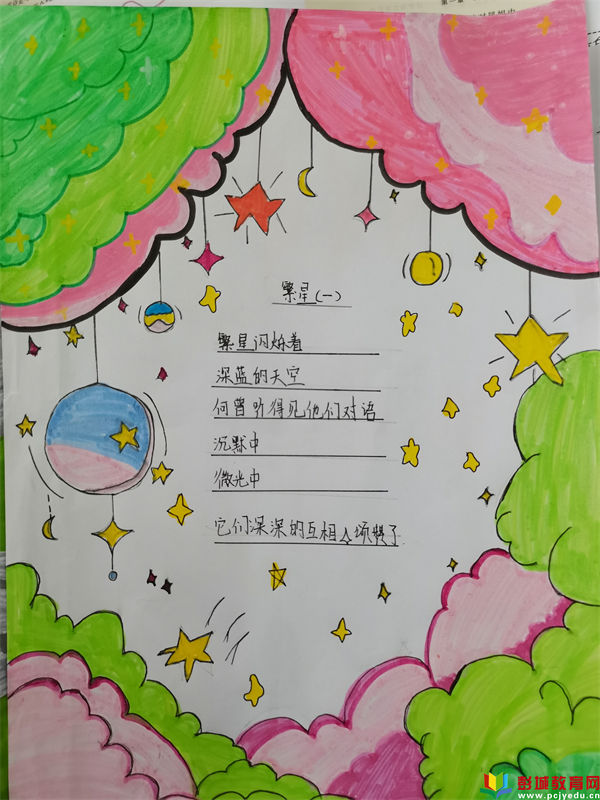 繁星(一)
繁星闪烁着
深蓝的天空
何曾听得见他们对语
沉默中
微光中
它们深深的互相颂赞了
彭城教育网
www.pcjyedu.cn